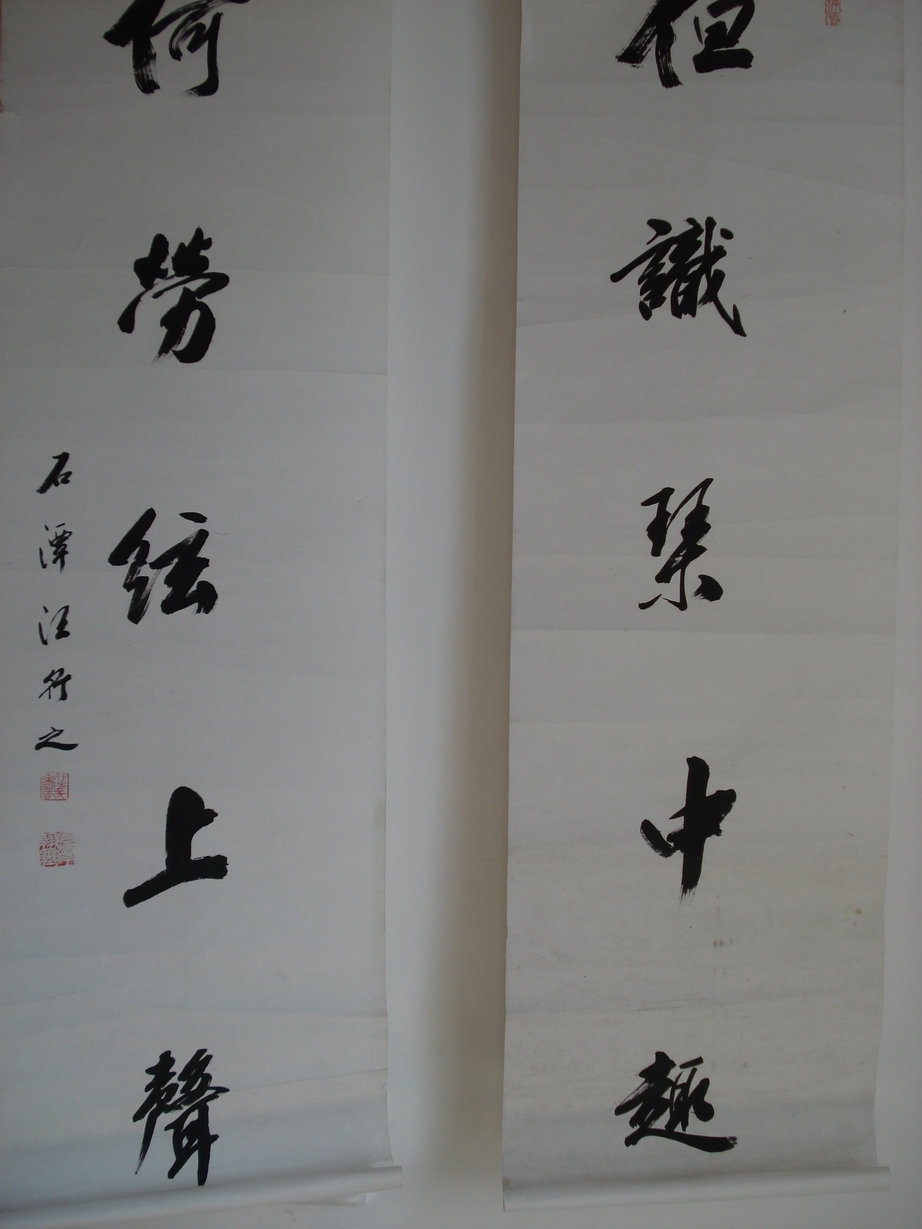 但識琴中趣
何勞絃上聲
石潭汪行之